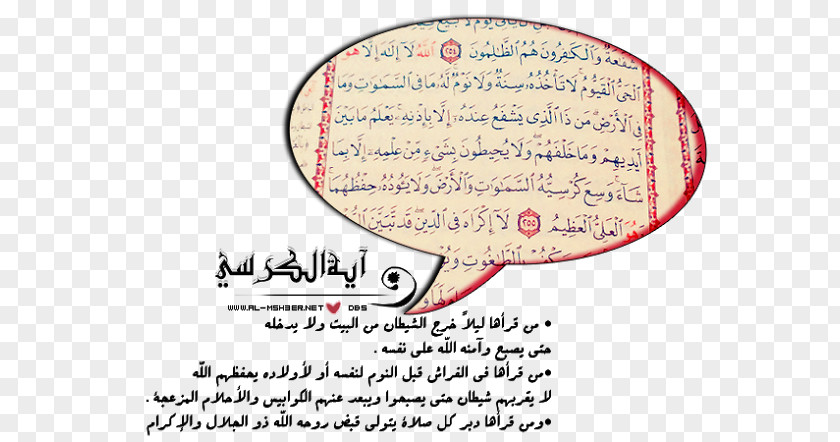 شَفَـٰعَةٌ وَالْكَـٰفِرُونَ هُمُ الظَّـٰلِمُونَ ٢٥٤ اللَّهُ لَآ إِلَـٰهَ إِلَّا هُوَ
الْحَيُّ الْقَيُّومُ لَا تَأْخُذُهُ سِنَةٌ وَلَا نَوْمٌ لَّهُ مَا فِى السَّمَـٰوَٰتِ وَمَا
فِى الْأَرْضِ مَن ذَا الَّذِى يَشْفَعُ عِندَهُ إِلَّا بِإِذْنِهِ يَعْلَمُ مَا بَيْنَ
أَيْدِيهِمْ وَمَا خَلْفَهُمْ وَلَا يُحِيطُونَ بِشَىْءٍ مِّنْ عِلْمِهِ إِلَّا بِمَا
شَآءَ وَسِعَ كُرْسِيُّهُ السَّمَـٰوَٰتِ وَالْأَرْضَ وَلَا يَئُودُهُ حِفْظُهُمَا
وَهُوَ الْعَلِىُّ الْعَظِيمُ ٢٥٥ لَآ إِكْرَاهَ فِى الدِّينِ قَد تَّبَيَّنَ
بِالطَّـٰغُوتِ
آية الكرسي
WWW.AL-MSHBER.NET DBS
• من قرأها ليلاً خرج الشيطان من البيت ولا يدخله
حتى يصبح وآمنه الله على نفسه .
•من قرأها فى الفراش قبل النوم لنفسه أو لأولاده يحفظهم الله
لا يقربهم شيطان حتى يصبحوا ويبعد عنهم الكوابيس والأحلام المزعجة .
•ومن قرأها دبر كل صلاة يتولى قبض روحه الله ذو الجلال والإكرام